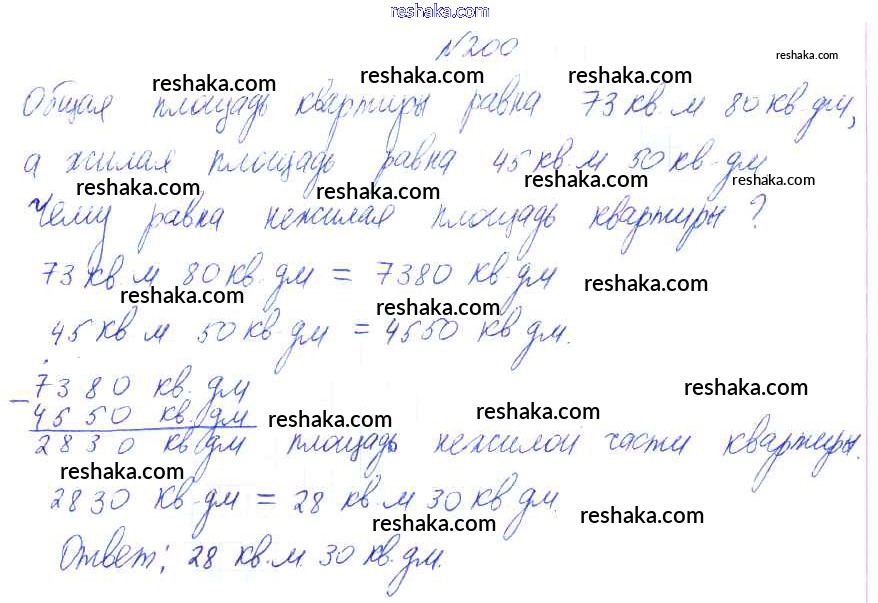 reshaka.com
№200
reshaka.com
reshaka.com reshaka.com reshaka.com
Общая площадь квартиры равна 73 кв. м 80 кв. дм,
а жилая площадь равна 45 кв. м 50 кв. дм
reshaka.com reshaka.com reshaka.com reshaka.com
Чему равна нежилая площадь квартиры?
73 кв. м 80 кв. дм = 7380 кв. дм
reshaka.com reshaka.com reshaka.com
45 кв м 50 кв. дм = 4550 кв дм.
– 7380 кв. дм
reshaka.com
4550 кв. дм
reshaka.com reshaka.com
2830 кв дм площадь нежилой части квартиры.
reshaka.com
2830 кв. дм = 28 кв. м 30 кв дм.
reshaka.com reshaka.com
Ответ: 28 кв. м. 30 кв. дм.